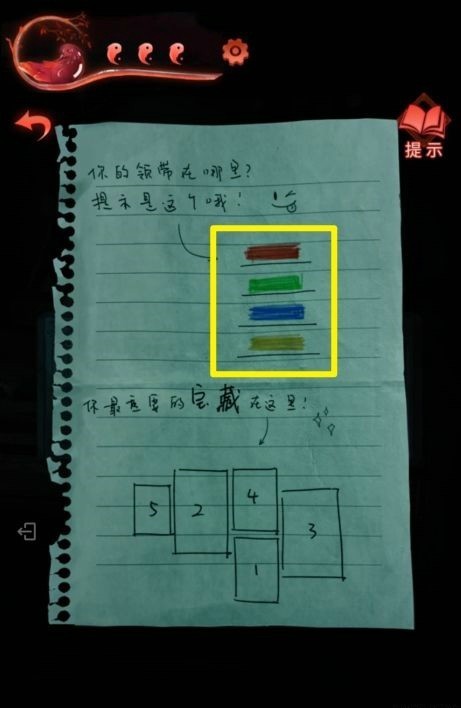 提示
你的领带在哪里?
提示是这个哦!
你最重要的宝藏在这里!
5
2
4
3
1